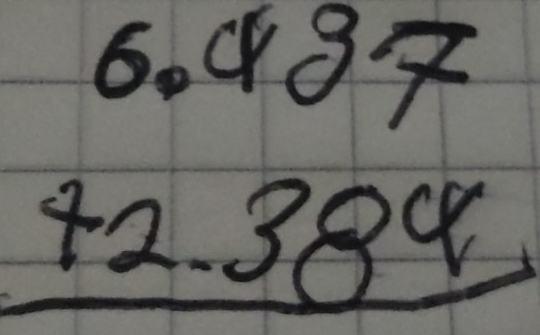 6.487
+2.384